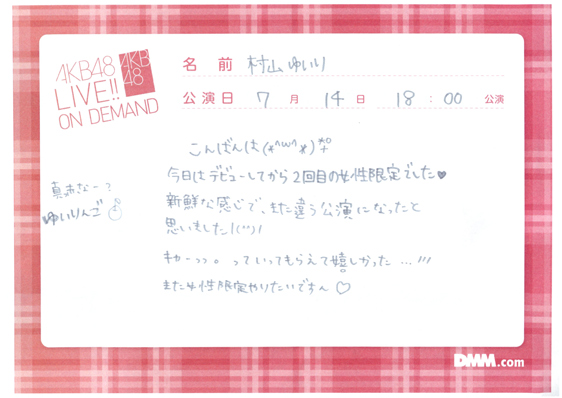 AKB48
LIVE!!
ON DEMAND
AKB
48
名前 村山ゆいり
公演日 7月14日 18:00 公演
こんばんは(*^ω^*)
今日はデビューしてから2回目の女性限定でした♥
新鮮な感じで、また違う公演になったと
思いました!(^^)!
キャーっっ。っていってもらえて嬉しかった…!!!
また女性限定やりたいですん♡
真っ赤なー?
ゆいりんご
DMM.com